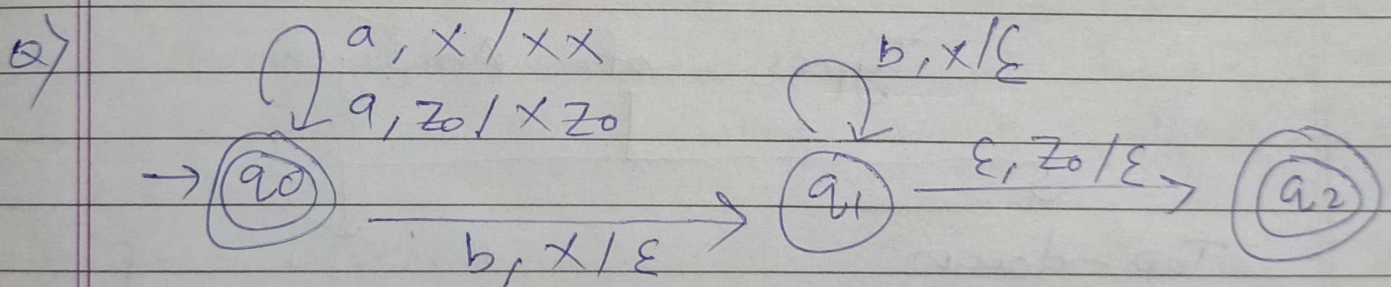 Q)
a, x / xx
a, z0 / x z0
b, x/ε
→ q0
b, x / ε
q1
ε, z0 / ε
q2